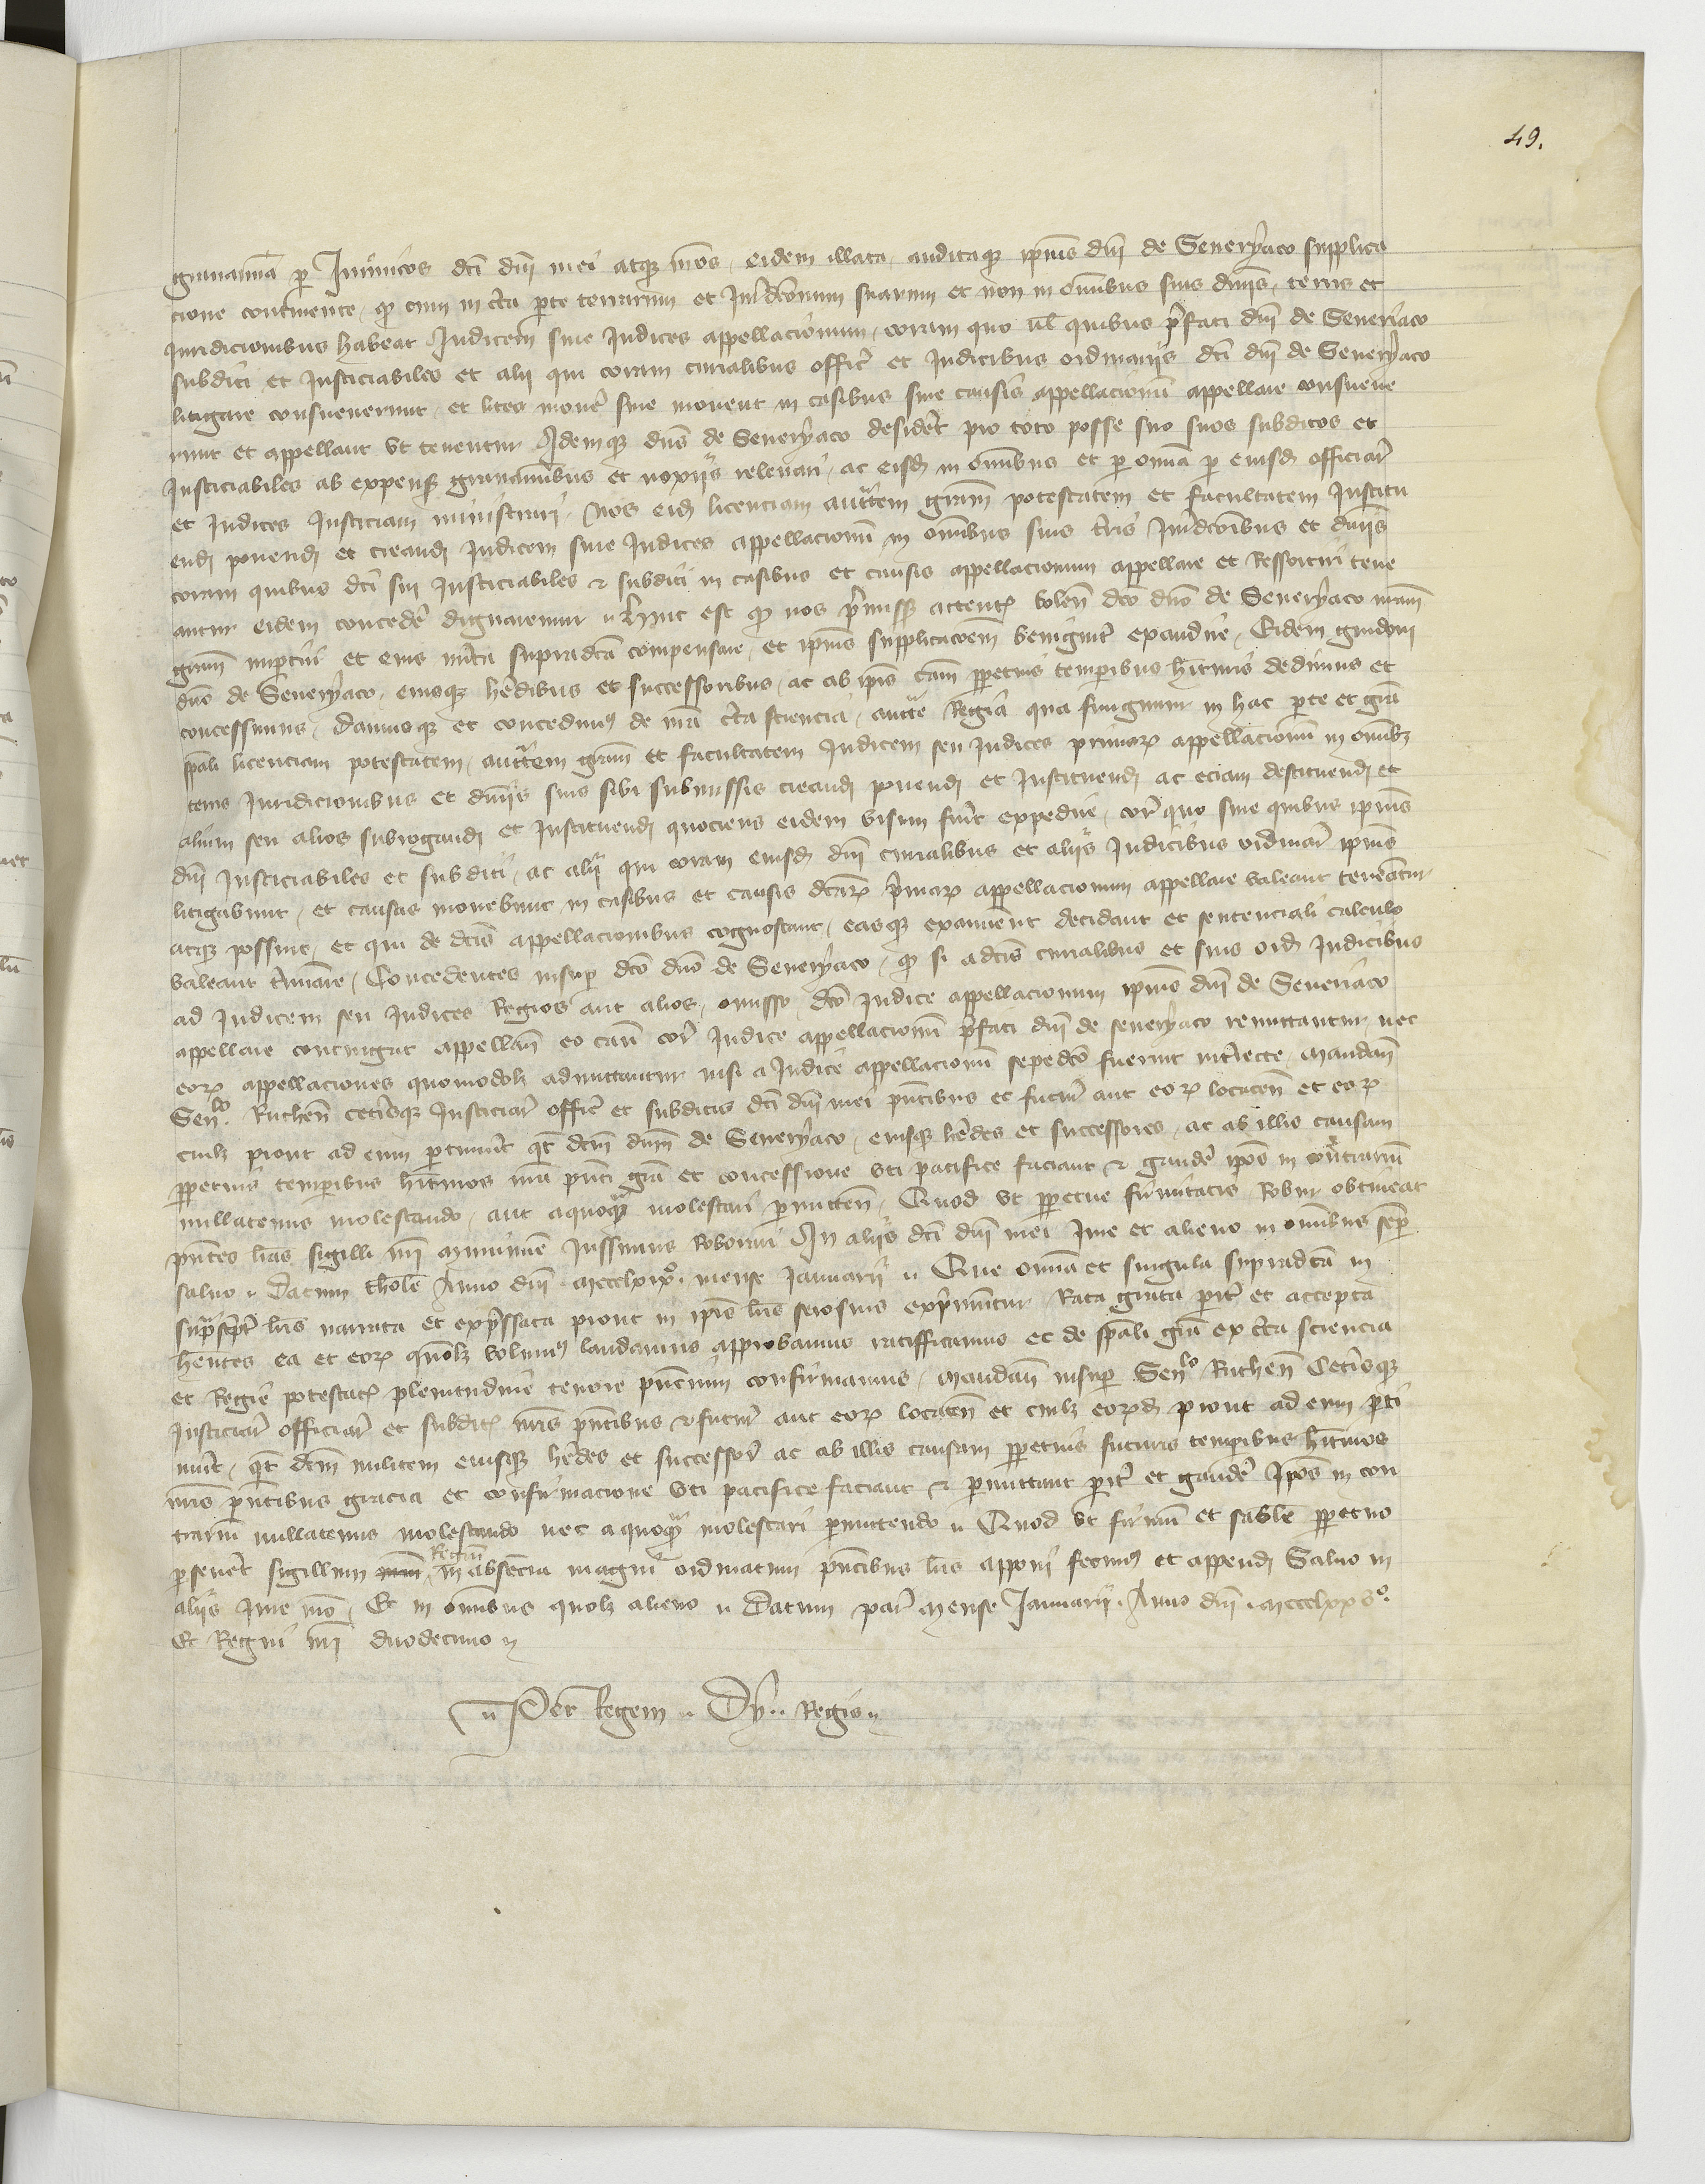 49.
gravamīa p Inimicos dci dnī mei atqz nr̄os, eidem illata, auditaqz ipius dnī de Seneryaco supplica
cione continente, qd cum in cta pte terrarum et Jurdcōnum suarum et non in om̄ibus suis dnīis, terris et
Juridicionibus habeat Judicem sive Judices appellacionum, coram quo ul quibus p̄fati dnī de Seneriaco
subditi et Justiciabiles et alii qui coram curialibus offic̄ et Judicibus ordinariis dcī dnī de Seneryaco
litigare consueverunt, et lites movēt sive movent in casibus sive causis appellacionū appellare consueve
runt et appellant ut tenentur Idemqz dn̄s de Seneryaco desidēt pro toto posse suo suos subditos et
Justiciabiles ab expens gravam̄ibus et noxiis relevari, ac eisd in om̄ibus et p om̄ia p eiusd officiar̄
et Judices Justiciam ministrari, Nos eid licenciam auctem gram̄ potestatem et facultatem Institu
endi ponendi et creandi Judicem sive Judices appellacionū in om̄ibus suis t̄ris Jurdcōibus et dnīis
coram quibus dcī sui Justiciabiles & subditi in casibus et causis appellacionum appellare et Ressortiri tene
antur eidem concedē dignaremur Hinc est qd nos p̄miss attentis volen̄ dcō dnō de Seneryaco nram̄
gram̄ imptiri et eius m̄ita supradcta compensare, et ipius supplicacōem benignit̄ exaudire, Eidem guidoni
dnō de Seneryaco, eiusqz h̄edibus et successoribus, ac ab ip̄is cam̄ ppetuis temporibus h̄ituris dedimus et
concessimus, Damusqz et concedimus de nra cta sciencia, aucte Regia qua fungimur in hac pte et gra
spāli licenciam potestatem, auctem gram̄ et facultatem Judicem seu Judices primar appellacionū in om̄ibz
terris Juridicionibus et dnīis suis sibi submissis creandi ponendi et Instituendi ac eciam destituendi et
alium seu alios subrogandi et Instituendi quociens eidem visum fuīt expedire, cor̄ quo sive quibus ipius
dnī Justiciabiles et subditi, ac alii qui coram eiusd dnī curialibus et aliis Judicibus ordinar̄ ipius
litigabunt, et causas movebunt, in casibus et causis dctar p̄mar appellacionum appellare valeant teneātur
atqz possint, et qui de dctis appellacionibus cognoscant, easqz examinent decidant et sentenciali calculo
valeant t̄minare, Concedentes insup dcō dnō de Seneryaco, qd si a dctis curialibus et suis ord Judicibus
ad Judicem seu Judices Regios aut alios, omisso dcō Judice appellacionum ipius dnī de Seneriaco
appellare contingat appellan̄ eo cau cor̄ Judice appellacionū p̄fati dnī de seneryaco remittantur nec
eor appellaciones quomodolz admittantur nisi a Judice appellacionū sepedcō fuerint int̄iecte, Mandan̄
Senlo Ruthen̄ cet̄isqz Justiciar̄ offic̄ et subditis dcī dnī mei pn̄tibus et futur̄ aut eor locaten̄ et eor
cuilz prout ad eum ptinuīt qt dctm dnm̄ de Seneryaco, eiusqz h̄edes et successores, ac ab illis causam
ppetuis temporibus h̄ituros nra pn̄ti gra et concessione uti pacifice faciant & gaudē ip̄os in contrariū
nullatenus molestando, aut a quoqz molestari pmitten̄, Quod ut ppetue firmitatis Robur obtineat
pn̄tes lras sigilli nri munimine Jussimus Roborari In aliis dcī dnī mei Jure et alieno in om̄ibus semp
salvo Datum tholē Anno dnī mccclxixo mense Januarii Que om̄ia et singula supradcta in
suprascpt̄ lris narrata et exp̄ssata prout in ip̄is lris seriosius exp̄muntur Rata grata pit̄ et accepta
h̄entes ea et eor quelz volumus laudamus approbamus ratifficamus et de spāli gra ex cta sciencia
et Regie potestatis plenitudine tenore pn̄cium confirmamus, Mandan̄ insup Senlo Ruthen̄ Cet̄isqz
Justiciar̄ officiar̄ et subditis nris pn̄tibus & futur̄ aut eor locaten̄ et cuilz eord prout ad eum pti
nuīt, qt dctm militem eiusqz h̄edes et successor̄ ac ab illis causam ppetuis futuris temporibus h̄ituros
nris pn̄tibus gracia et confirmacione uti pacifice faciant & pmittant pit̄ et gaudē Ip̄os in con
trariū nullatenus molestando nec a quoqz molestari pmittendo Quod ut firmū et stabile ppetuo
psevēt sigillum nrm̄ Regiū in absencia magni ordinatum pn̄tibus lris apponi fecimus et appendi Salvo in
aliis Jure nrō, Et in om̄ibus quolz alieno Datum par̄ Mense Januarii, Anno dnī mccclxxvo
Et Regni nri duodecimo
Per Regem Dy.. Regis